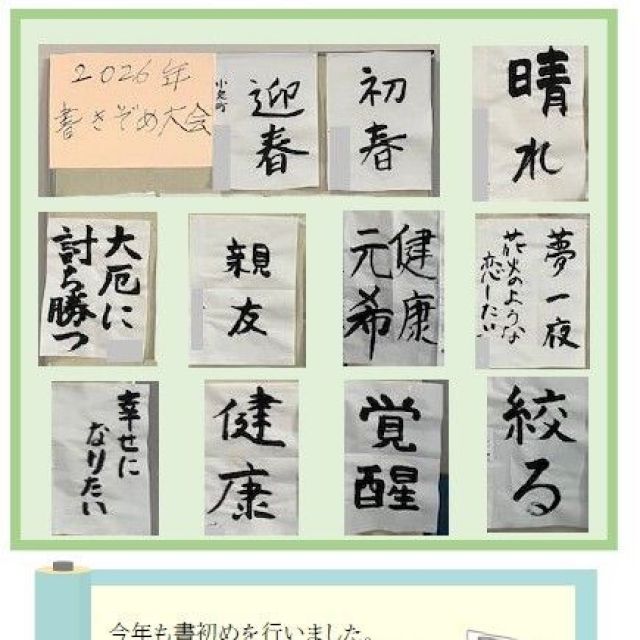 2026年
書きぞめ大会
迎春
初春
晴れ
大厄に
討ち勝つ
親友
健康
元希
夢一夜
花火のような
恋したい
幸せに
なりたい
健康
覚醒
絞る
今年も書初めを行いました。